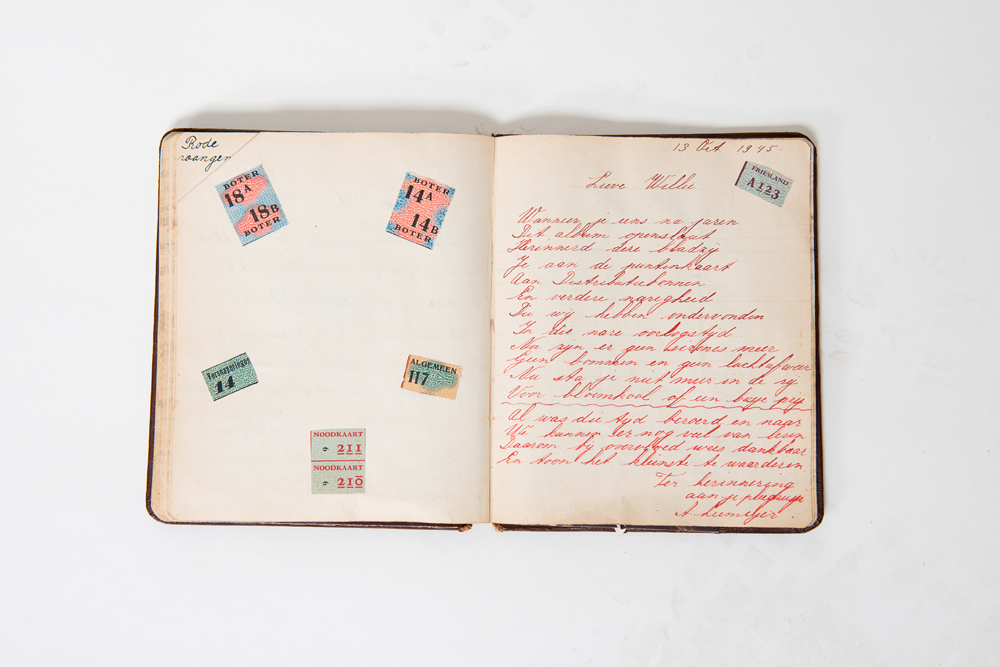 Rode
wangen
BOTER
18A
18B
BOTER
BOTER
14A
14B
BOTER
14
ALGEMEEN
117
NOODKAART
9 211
NOODKAART
9 210
13 Oct 1945
FRIESLAND
A123
Lieve Willi
Wanneer je eens na jaren
Dit album openslaat
Herinnerd deze bladzij
Je aan de puntenkaart
Aan Distributiebonnen
En verdere narigheid
Die wij hebben ondervonden
In die nare oorlogstijd
Nu zijn er geen sirenes meer
Geen bommen en geen luchtafweer
Nu sta je niet meer in de rij
Voor bloemkool of een busje prij
Al was die tijd beroerd en naar
We kunnen er nog veel van leren
Daarom bij overvloed wees dankbaar
En toon het kleinste te waarderen.
Ter herinnering
aan je
A.